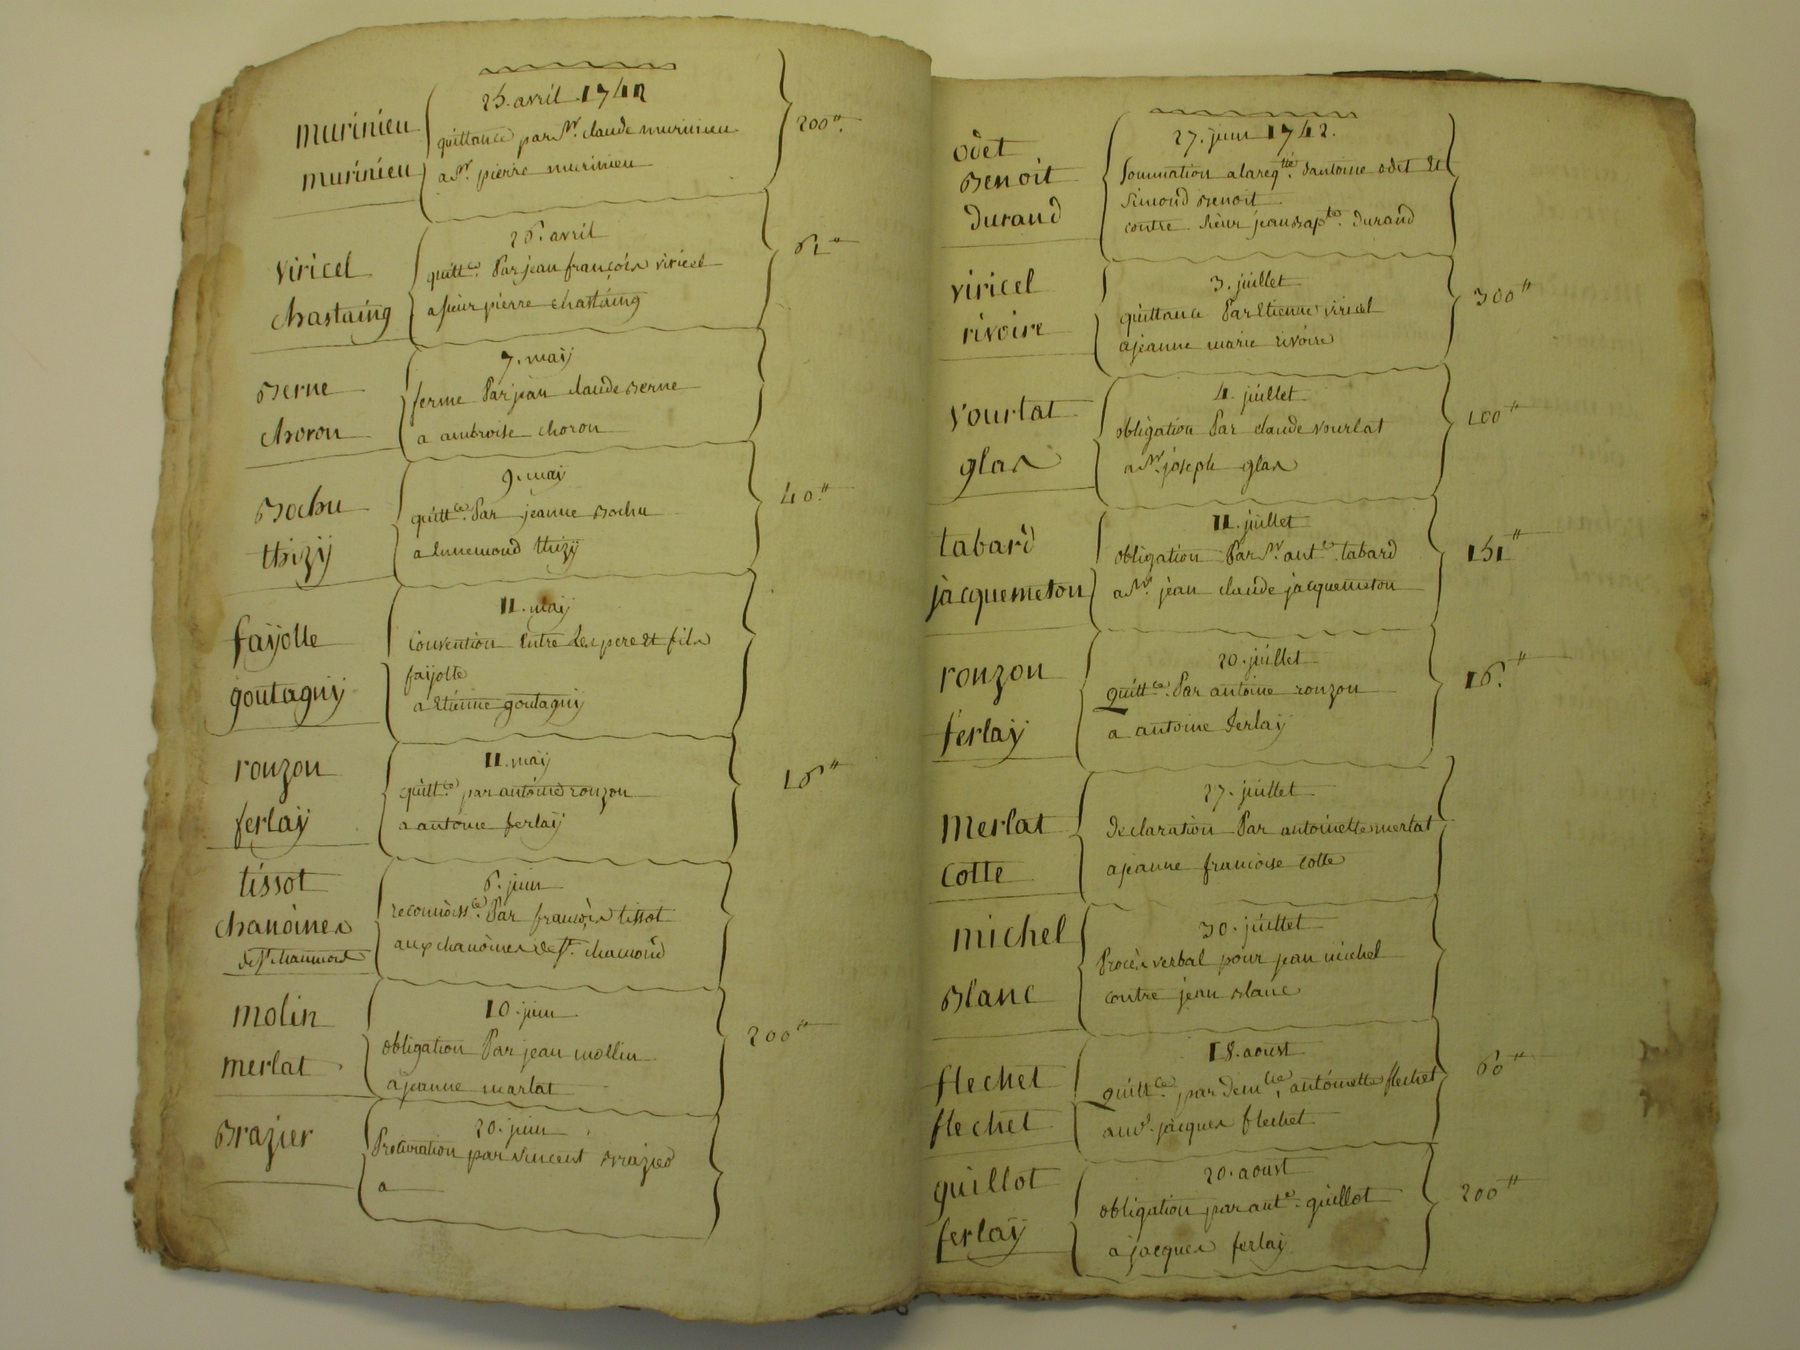 murinieu
murinieu
25. avril 1742
quittance par Sr. claude murinieu
a Sr. pierre murinieu
200"
viricel
chastaing
26. avril
quittce. Par jean françois viricel
a sieur pierre chastaing
61"
Berne
choron
7. maÿ
ferme Par jean claude Berne
a ambroise choron
Bochu
thizÿ
9. maÿ
quittce. Par jeanne Bochu
a Ennemond thizÿ
40"
faÿolle
goutagnÿ
11. maÿ
Convention Entre Les pere Et fils
faÿolle
a Etienne goutagnÿ
ronzon
ferlaÿ
11. maÿ
quittce. par antoine ronzon
a antoine ferlaÿ
16"
tissot
chanoines
de St chaumond
6. juin
reconnoissce. Par françois tissot
aux chanoines de St. chamond
molin
merlat
10. juin
obligation Par jean mollin
a jeanne marlat
200"
Brazier
20. juin
Procuration par vincent Brazier
a
odet
Benoit
durand
27. juin 1742.
Sommation a la reqtte. dantoine odet Et
Simond Benoit
contre Sieur jean Bapte. durand
viricel
rivoire
3. juillet
quittance Par Etienne viricel
a jeanne marie rivoire
300"
vourlat
glas
4. juillet
obligation Par claude vourlat
a Sr. joseph glas
100"
tabard
jacquemeton
11. juillet
obligation Par Sr. ante. tabard
a Sr. jean claude jacquemeton
151"
ronzon
ferlaÿ
20. juillet
quittce. Par antoine ronzon
a antoine ferlaÿ
16"
Merlat
Cotte
27. juillet
declaration Par antoinette merlat
a jeanne francoise cotte
michel
Blanc
30. juillet
Procès verbal pour jean michel
contre jean Blanc
flechet
flechet
18. aoust
quittce. par demlle. antoinette flechet
au Sr. jacques flechet
60"
guillot
ferlaÿ
20. aoust
obligation par ante. guillot
a jacques ferlaÿ
200"